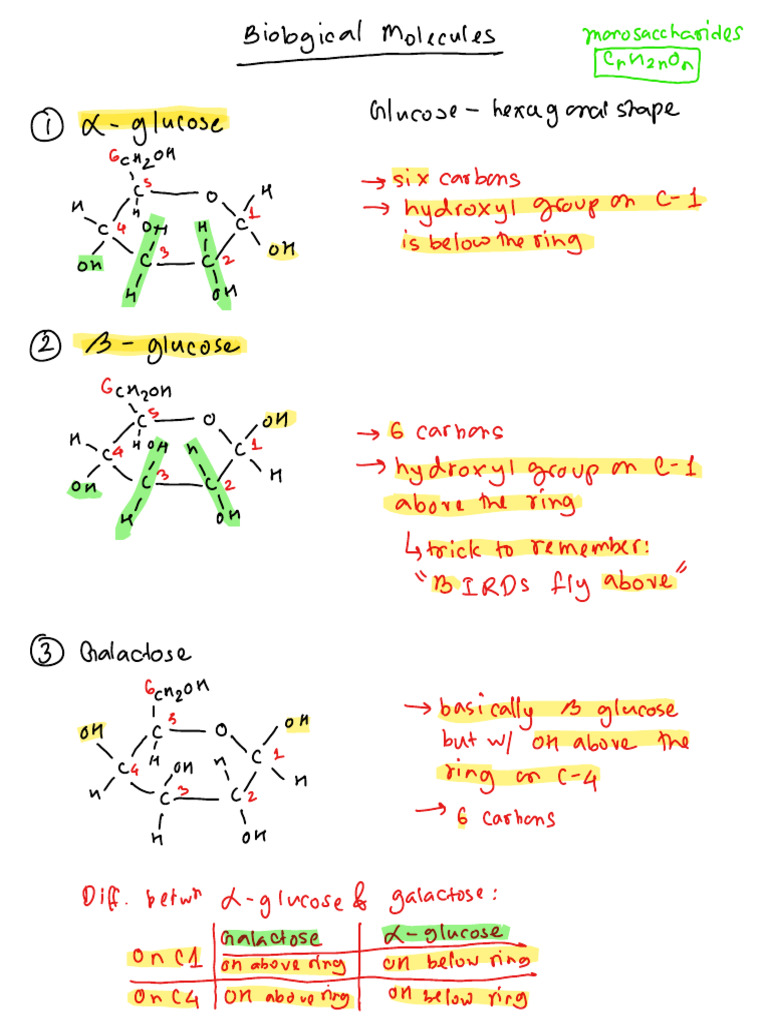 Biological Molecules
monosaccharides
CnH2nOn
① α-glucose
Glucose – hexagonal shape
6 CH2OH
C 5 O H
H H C 1
C 4 OH H
OH C 3 C 2 OH
H OH
→ six carbons
→ hydroxyl group on C-1
is below the ring
② β-glucose
6 CH2OH
C 5 O OH
H H OH H C 1
C 4
OH C 3 C 2 H
H OH
→ 6 carbons
→ hydroxyl group on C-1
above the ring
↳ trick to remember:
"BIRDs fly above"
③ Galactose
6 CH2OH
OH C 5 O OH
C 4 H OH H C 1
H C 3 C 2 H
H OH
→ basically β glucose
but w/ OH above the
ring on C-4
→ 6 carbons
Diff. betwn α-glucose & galactose:
Galactose α-glucose
On C1 OH above ring OH below ring
On C4 OH above ring OH below ring